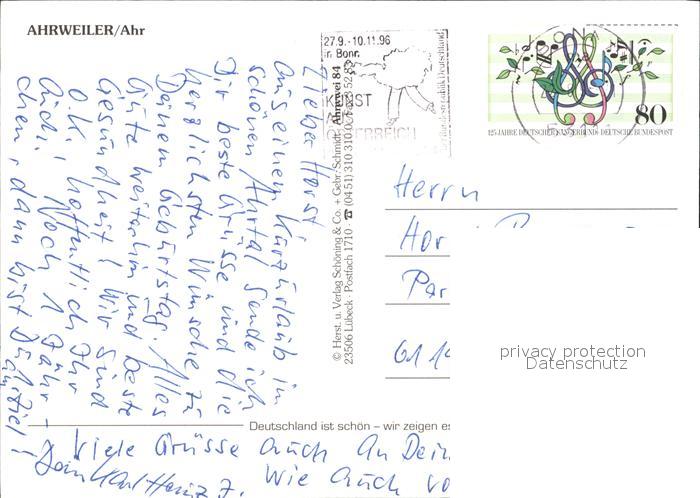 AHRWEILER/Ahr
27.9.-10.11.96
in Bonn
KUNST
ÖSTERREICH
125 JAHRE DEUTSCHER SÄNGERBUND DEUTSCHE BUNDESPOST
80
Lieber Horst
aus einem Kurzurlaub im
schönen Ahrtal sende ich
Dir beste Grüsse und die
herzlichsten Wünsche zu
Deinem Geburtstag. Alles
Gute weiterhin und beste
Gesundheit! Wir sind
o.k., hoffentlich Ihr
auch. Noch 1 Jähr-
chen, dann bist Du
am Ziel!
Viele Grüsse auch an Dein
Dein Karl Heinz
wie auch vo
© Herst. u. Verlag Schöning & Co. + Gebr. Schmidt
23506 Lübeck · Postfach 1710 · ☎ (0451) 310
Ahrwei 84
Herrn
Hor
Par
61
privacy protection
Datenschutz
Deutschland ist schön – wir zeigen es